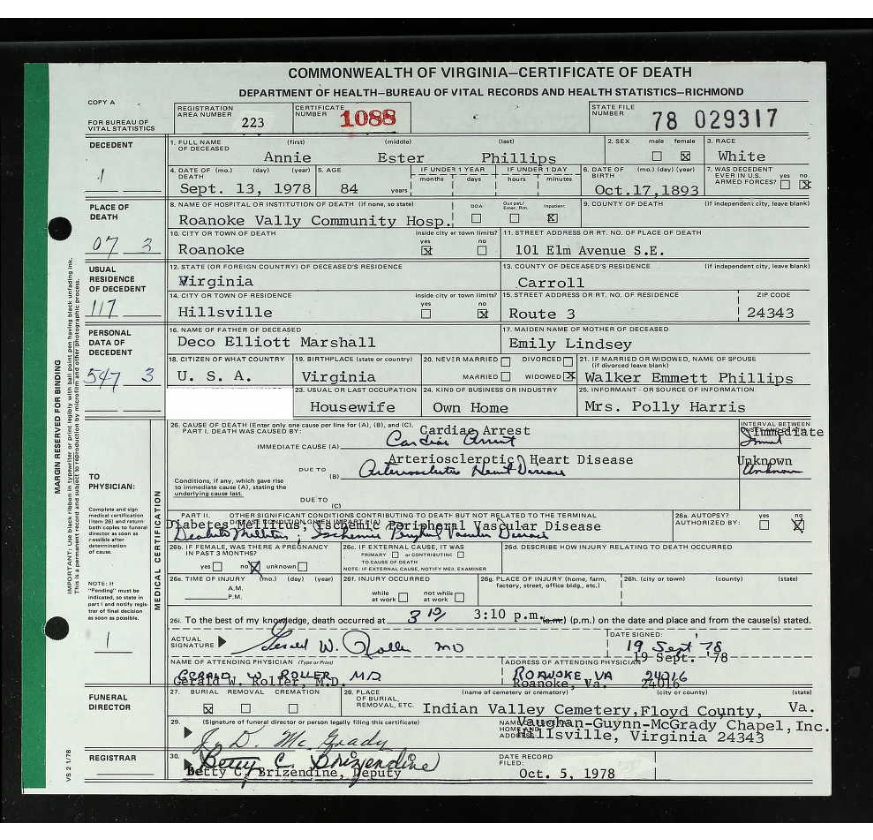 COMMONWEALTH OF VIRGINIA—CERTIFICATE OF DEATH
DEPARTMENT OF HEALTH—BUREAU OF VITAL RECORDS AND HEALTH STATISTICS—RICHMOND
COPY A
FOR BUREAU OF VITAL STATISTICS
REGISTRATION AREA NUMBER 223
CERTIFICATE NUMBER 1088
STATE FILE NUMBER 78 029317
DECEDENT
1. FULL NAME OF DECEASED (first) (middle) (last)
Annie Ester Phillips
2. SEX male female ☒
3. RACE
White
4. DATE OF DEATH (mo.) (day) (year)
Sept. 13, 1978
5. AGE
84 years
IF UNDER 1 YEAR months days
IF UNDER 1 DAY hours minutes
6. DATE OF BIRTH (mo.) (day) (year)
Oct.17,1893
7. WAS DECEDENT EVER IN U.S. ARMED FORCES? yes no ☒
1
PLACE OF DEATH
07 3
8. NAME OF HOSPITAL OR INSTITUTION OF DEATH (if none, so state)
Roanoke Vally Community Hosp.
DOA Out pat/ Emer. Rm. Inpatient ☒
9. COUNTY OF DEATH (if independent city, leave blank)
10. CITY OR TOWN OF DEATH inside city or town limits? yes ☒ no
Roanoke
11. STREET ADDRESS OR RT. NO. OF PLACE OF DEATH
101 Elm Avenue S.E.
USUAL RESIDENCE OF DECEDENT
117
12. STATE (OR FOREIGN COUNTRY) OF DECEASED'S RESIDENCE
Virginia
13. COUNTY OF DECEASED'S RESIDENCE (if independent city, leave blank)
Carroll
14. CITY OR TOWN OF RESIDENCE inside city or town limits? yes no ☒
Hillsville
15. STREET ADDRESS OR RT. NO. OF RESIDENCE
Route 3
ZIP CODE
24343
PERSONAL DATA OF DECEDENT
547 3
16. NAME OF FATHER OF DECEASED
Deco Elliott Marshall
17. MAIDEN NAME OF MOTHER OF DECEASED
Emily Lindsey
18. CITIZEN OF WHAT COUNTRY
U. S. A.
19. BIRTHPLACE (state or country)
Virginia
20. NEVER MARRIED DIVORCED
MARRIED WIDOWED ☒
21. IF MARRIED OR WIDOWED, NAME OF SPOUSE (if divorced leave blank)
Walker Emmett Phillips
23. USUAL OR LAST OCCUPATION
Housewife
24. KIND OF BUSINESS OR INDUSTRY
Own Home
25. INFORMANT - OR SOURCE OF INFORMATION
Mrs. Polly Harris
MARGIN RESERVED FOR BINDING
MEDICAL CERTIFICATION
TO PHYSICIAN:
Complete and sign medical certification (Item 26) and return both copies to funeral director as soon as possible after determination of cause.
NOTE: If "Pending" must be indicated, so state in part I and notify registrar of final decision as soon as possible.
1
26. CAUSE OF DEATH (Enter only one cause per line for (A), (B), and (C).
PART I. DEATH WAS CAUSED BY:
IMMEDIATE CAUSE (A)
Cardiac Arrest
Cardiac Arrest
INTERVAL BETWEEN
Immediate
Conditions, if any, which gave rise to immediate cause (A), stating the underlying cause last.
DUE TO (B)
Arteriosclerotic Heart Disease
Arteriosclerotic Heart Disease
Unknown
Unknown
DUE TO (C)
PART II. OTHER SIGNIFICANT CONDITIONS CONTRIBUTING TO DEATH BUT NOT RELATED TO THE TERMINAL
Diabetes Mellitus; Ischemic Peripheral Vascular Disease
Diabetes Mellitus; Ischemic Periphel Vascular Disease
26a. AUTOPSY? AUTHORIZED BY: yes no ☒
26b. IF FEMALE, WAS THERE A PREGNANCY IN PAST 3 MONTHS? yes no ☒ unknown
26c. IF EXTERNAL CAUSE, IT WAS PRIMARY or CONTRIBUTING TO CAUSE OF DEATH
NOTE: IF EXTERNAL CAUSE, NOTIFY MED. EXAMINER
26d. DESCRIBE HOW INJURY RELATING TO DEATH OCCURRED
26e. TIME OF INJURY (mo.) (day) (year) A.M. P.M.
26f. INJURY OCCURRED while at work not while at work
26g. PLACE OF INJURY (home, farm, factory, street, office bldg., etc.)
26h. (city or town) (county) (state)
26i. To the best of my knowledge, death occurred at 3 10 3:10 p.m. (a.m.) (p.m.) on the date and place and from the cause(s) stated.
ACTUAL SIGNATURE Gerald W. Roller MD
DATE SIGNED:
19 Sept '78
19 Sept. '78
NAME OF ATTENDING PHYSICIAN (Type or Print)
GERALD W. ROLLER, MD
Gerald W. Roller, M.D.
ADDRESS OF ATTENDING PHYSICIAN
ROANOKE, VA 24016
Roanoke, Va. 24016
FUNERAL DIRECTOR
27. BURIAL ☒ REMOVAL CREMATION
28. PLACE OF BURIAL, REMOVAL, ETC. (name of cemetery or crematory) (city or county) (state)
Indian Valley Cemetery, Floyd County, Va.
29. (Signature of funeral director or person legally filing this certificate)
J. D. McGrady
Vaughan-Guynn-McGrady Chapel, Inc.
Hillsville, Virginia 24343
REGISTRAR
30.
Betty C. Brizendine
Betty C. Brizendine, Deputy
DATE RECORD FILED:
Oct. 5, 1978
VS 2 1/78